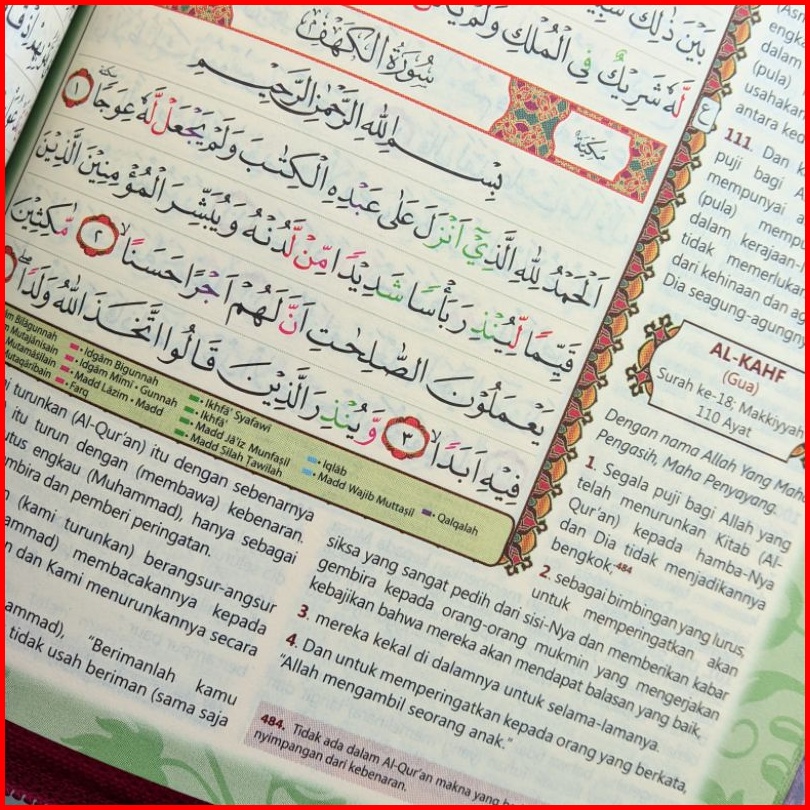 لَّهٗ شَرِيْكٌ فِى الْمُلْكِ وَلَمْ
سُوْرَةُ الْكَهْفِ
مَكِّيَّة
بِسْمِ اللّٰهِ الرَّحْمٰنِ الرَّحِيْمِ
اَلْحَمْدُ لِلّٰهِ الَّذِيْٓ اَنْزَلَ عَلٰى عَبْدِهِ الْكِتٰبَ وَلَمْ يَجْعَلْ لَّهٗ عِوَجًا ۜ ١
قَيِّمًا لِّيُنْذِرَ بَأْسًا شَدِيْدًا مِّنْ لَّدُنْهُ وَيُبَشِّرَ الْمُؤْمِنِيْنَ الَّذِيْنَ
يَعْمَلُوْنَ الصّٰلِحٰتِ اَنَّ لَهُمْ اَجْرًا حَسَنًاۙ ٢ مّٰكِثِيْنَ
فِيْهِ اَبَدًاۙ ٣ وَّيُنْذِرَ الَّذِيْنَ قَالُوا اتَّخَذَ اللّٰهُ وَلَدًاۖ
Idgām Bigunnah
Idgām Mimi • Gunnah
Madd Lāzim • Madd
Farq
Ikhfā' Syafawi
Ikhfā'
Madd Jā'iz Munfaṣil
Madd Silah Ṭawilah
Iqlāb
Madd Wajib Muttaṣil
Qalqalah
turunkan (Al-Qur'an) itu dengan sebenarnya
itu turun dengan (membawa) kebenaran.
engkau (Muhammad), hanya sebagai
dan pemberi peringatan.
(kami turunkan) berangsur-angsur
membacakannya kepada
dan Kami menurunkannya secara
"Berimanlah kamu
tidak usah beriman (sama saja
111. Dan
puji bagi
mempunyai
(pula)
dalam kerajaan-
tidak memerlukan
dari kehinaan dan
Dia seagung-agungnya
AL-KAHF
(Gua)
Surah ke-18: Makkiyyah
110 Ayat
Dengan nama Allah Yang
Pengasih, Maha Penyayang.
1. Segala puji bagi Allah yang
telah menurunkan Kitab (Al-
Qur'an) kepada hamba-Nya
dan Dia tidak menjadikannya
bengkok;484
2. sebagai bimbingan yang lurus,
untuk memperingatkan akan
siksa yang sangat pedih dari sisi-Nya dan memberikan kabar
gembira kepada orang-orang mukmin yang mengerjakan
kebajikan bahwa mereka akan mendapat balasan yang baik,
3. mereka kekal di dalamnya untuk selama-lamanya.
4. Dan untuk memperingatkan kepada orang yang berkata,
"Allah mengambil seorang anak."
484. Tidak ada dalam Al-Qur'an makna yang
nyimpangan dari kebenaran.